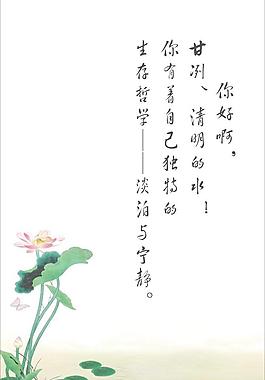 你好啊，
甘冽、清明的水！
你有着自己独特的
生存哲学——淡泊与宁静。